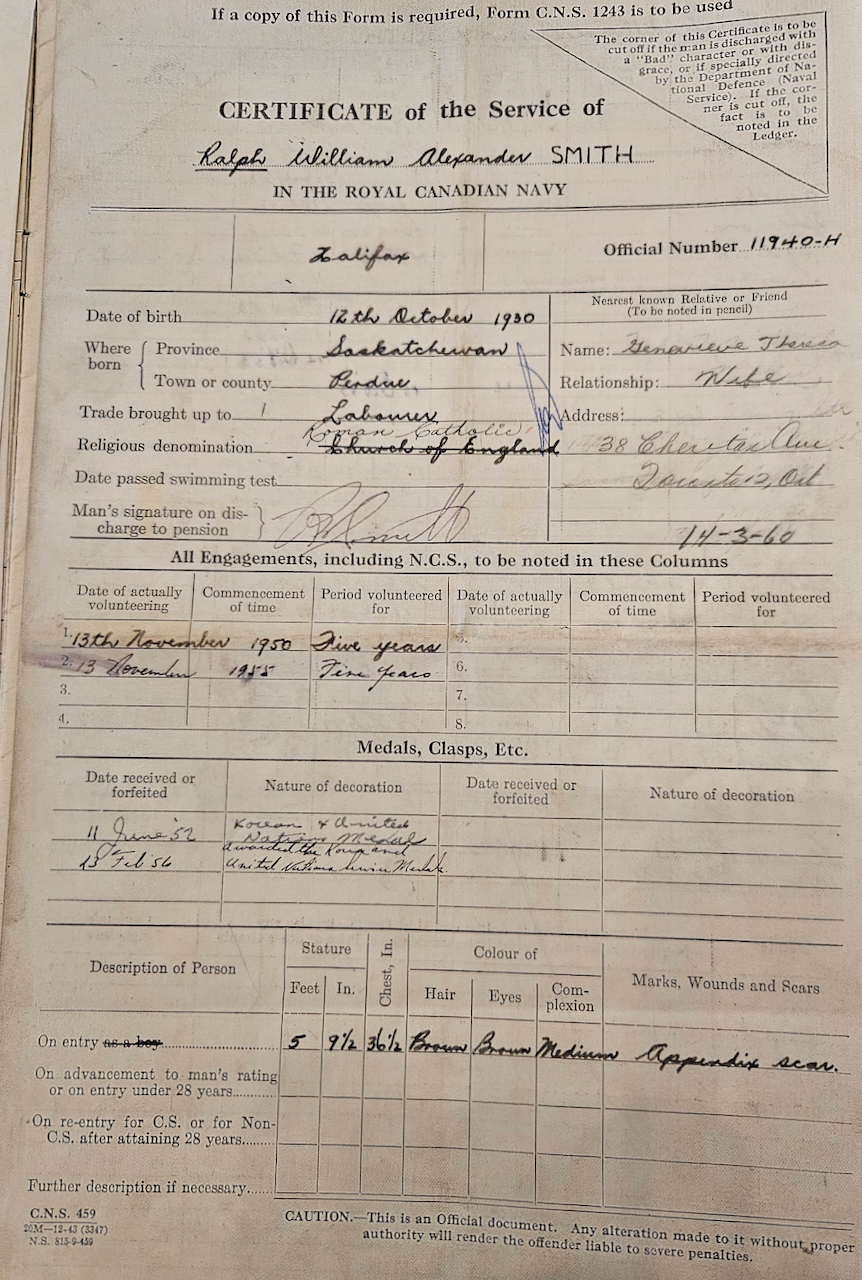 If a copy of this Form is required, Form C.N.S. 1243 is to be used
The corner of this Certificate is to be
cut off if the man is discharged with
a "Bad" character or with dis-
grace, or if specially directed
by the Department of Na-
tional Defence (Naval
Service). If the cor-
ner is cut off, the
fact is to be
noted in the
Ledger.
CERTIFICATE of the Service of
Ralph William Alexander SMITH
IN THE ROYAL CANADIAN NAVY
Halifax
Official Number 11940-H
Nearest known Relative or Friend
(To be noted in pencil)
Date of birth 12th October 1930
Where born { Province Saskatchewan
Town or county Perdue
Name: Genevieve Theresa
Relationship: Wife
Trade brought up to Labourer
Address:
Roman Catholic
Religious denomination Church of England
38 Ave
Date passed swimming test
Toronto 12, Ont
Man's signature on dis-
charge to pension } R Smith
14-3-60
All Engagements, including N.C.S., to be noted in these Columns
Date of actually volunteering Commencement of time Period volunteered for Date of actually volunteering Commencement of time Period volunteered for
1. 13th November 1950 Five years 5.
2. 13 November 1955 Five years 6.
3. 7.
4. 8.
Medals, Clasps, Etc.
Date received or forfeited Nature of decoration Date received or forfeited Nature of decoration
11 June '52 Korean & United
Nations Medal
awarded the Korea and
13 Feb 56 United Nations Service Medals.
Description of Person Stature Chest, In. Colour of Marks, Wounds and Scars
Feet In. Hair Eyes Com-
plexion
On entry as a boy 5 9½ 36½ Brown Brown Medium Appendix scar.
On advancement to man's rating
or on entry under 28 years
On re-entry for C.S. or for Non-
C.S. after attaining 28 years
Further description if necessary
C.N.S. 459
20M—12-43 (3347)
N.S. 815-9-459
CAUTION.—This is an Official document. Any alteration made to it without proper
authority will render the offender liable to severe penalties.